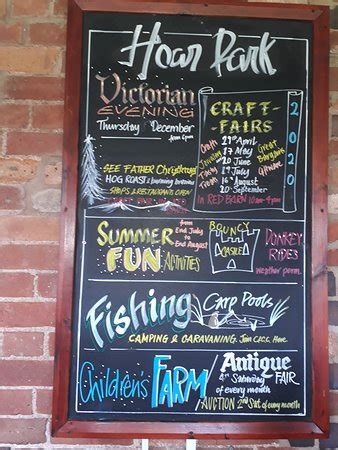 Hoar Park
Victorian
EVENING
Thursday December
from 6pm
SEE FATHER Christmas
HOG ROAST &
SHOPS & RESTAURANTS OPEN
CRAFT-
FAIRS
2020
Craft
Jewellery
19 July
16 August
20 September
17 May
20 June
Great
Bargains
IN RED BARN 10am-4pm
SUMMER
FUN
ACTIVITIES
from
End July
to
End August
BOUNCY
CASTLE
DONKEY
RIDES
weather perm.
Fishing
Carp Pools
CAMPING & CARAVANING. Join C.&C.C. Here
Children's
FARM
Antique
4th Saturday FAIR
of every month
AUCTION 2nd Sat of every month